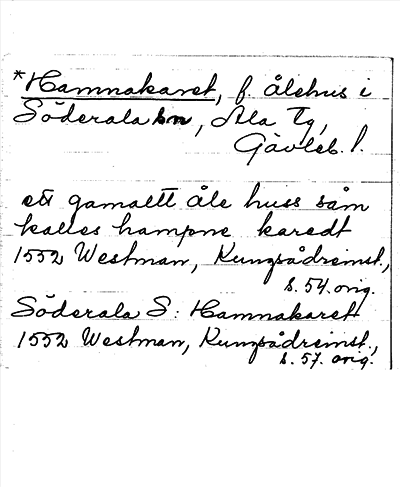 *Hamnakaret, f. ålehus i
Söderala sn, Ala tg,
Gävleb. l.
ett gamaltt åle huss såm
kalles hampne karedt
1552 Westman, Kungsådreinst.,
s. 54. orig.
Söderala S: Hamnakaret
1552 Westman, Kungsådreinst.,
s. 57. orig.